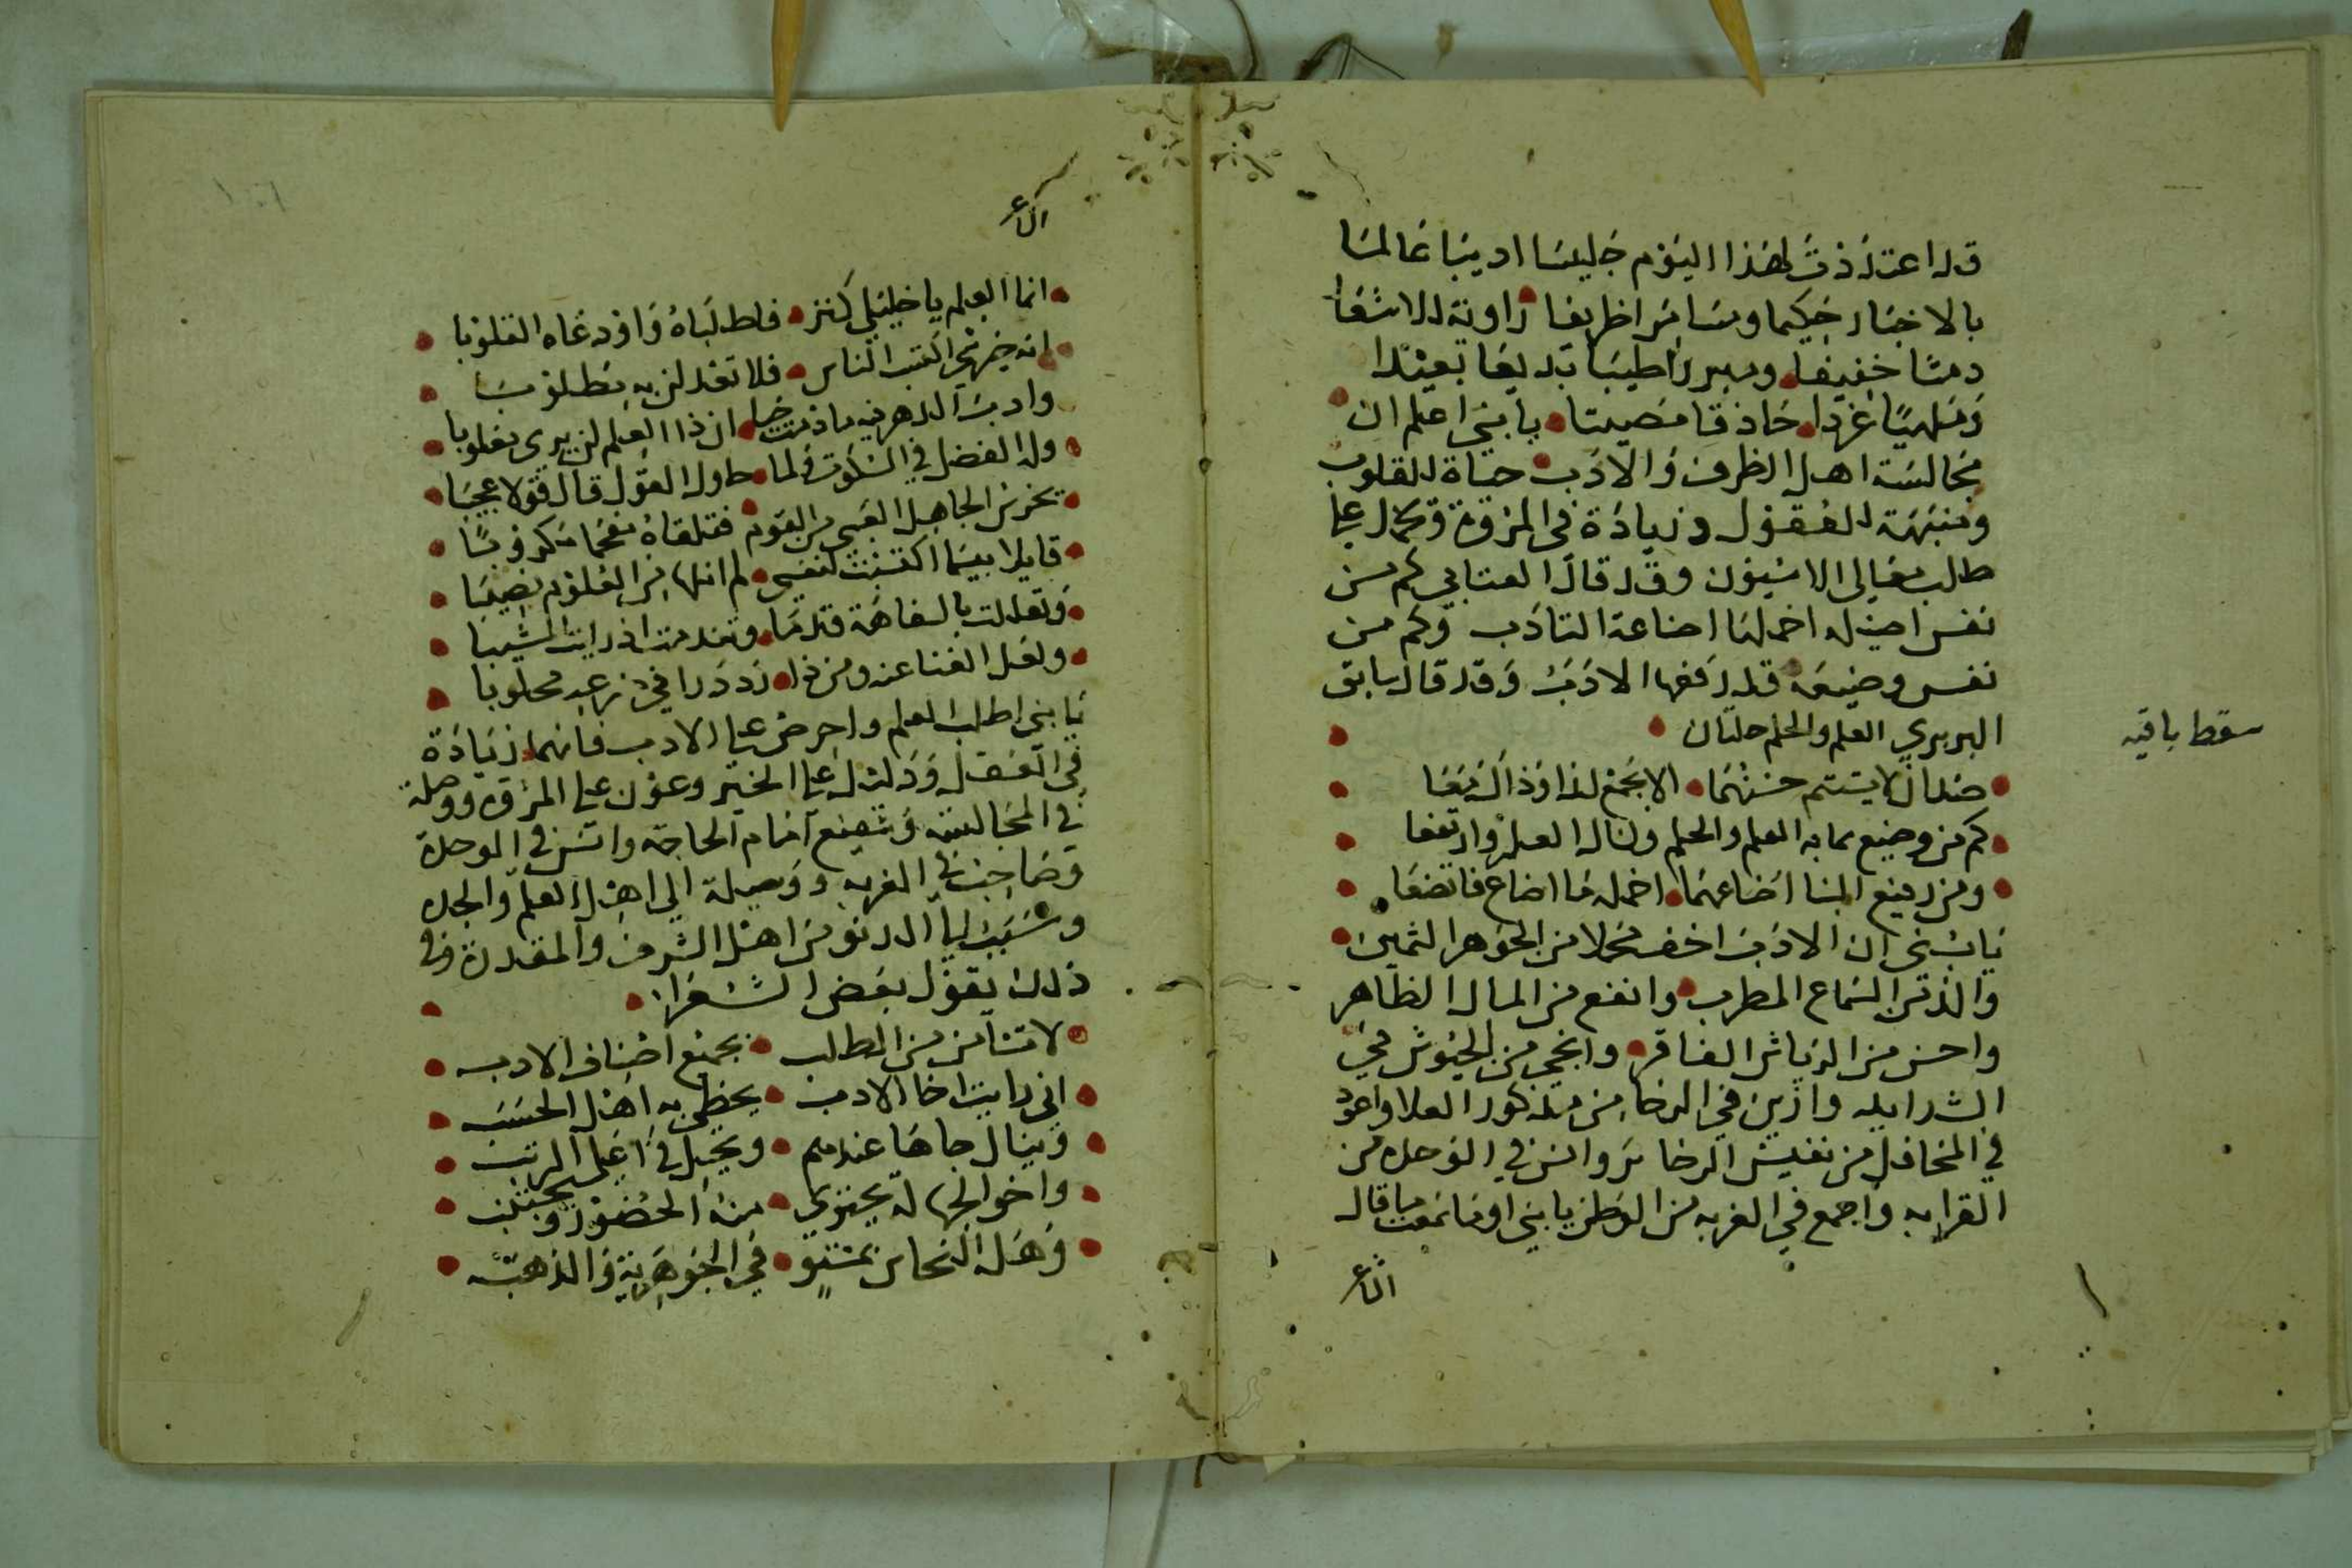 قد اعتدذت لهذا اليوم جليسا اديبا عالما
بالاخبار حكيما ومسامرا ظريفا راوية للاشعار
دمثا خفيفا وطيبا بديعا بعيدا
وملهيا غردا حاذقا مصيبا يا بني اعلم ان
مجالسة اهل الظرف والادب حياة للقلوب
ومنبهة للعقول وزيادة في المروة وتحمل على
طلب معالي الامور وقد قال العتابي كم من
نفس اصيله اخملها اضاعة التادب وكم من
نفس وضيعة قد رفعها الادب وقد قال سابق
البربري العلم والحلم حلتان
سقط باقيه
لا يستتم حسنهما الا بجمع لذا وذاك معا
كم من وضيع سما به العلم والحلم ونال العلو وارتفعا
ومن رفيع البنا اضاعهما اخمله ما اضاع فاتضعا
يا بني ان الادب اخف محملا من الجوهر الثمين
والذ من السماع المطرب وانفع من المال الظاهر
واحسن من الرياش الفاخر وانجى من الجيوش في
الشدايد وازين في الرخا من مذكور العلا واعود
في المحافل من نفيس الذخاير وانس في الوحدة من
القرابه واجمع في الغربه من الوطن يا بني اوما سمعت ما قال
الشاعر
الشاعر
انما العلم يا خليلي كنز فاطلباه واودعاه القلوبا
انه خير ما اكتسب الناس فلا تعدلن به مطلوبا
وادب الدهر فيه ما دمت حيا ان ذا العلم لن يرى مغلوبا
وله الفضل في السكوت فلما حاول القول قال قولا عجيبا
يخرس الجاهل الغبي من القوم فتلقاه مفحما مكروبا
قايلا بيسما اكتسبت لنفسي لم انلها من العلوم نصيبا
وتعللت بالسفاهة قدما وتندمت اذ رايت المشيبا
ولعل الغنا عنه ومن در في ضرعه محلوبا
يا بني اطلب العلم واحرص على الادب فانهما زيادة
في العقل ودليل على الخير وعون على المروة ووصلة
في المجالسه وشفيع امام الحاجة وانس في الوحدة
وصاحب في الغربه ووسيلة الى اهل العلم والجد
وسبب الى الدنو من اهل الشرف والمقدرة وفي
ذلك يقول بعض الشعرا
لا تسأمن من الطلب بجميع اصناف الادب
اني رايت اخا الادب يحظى به اهل الحسب
وينال جاها عندهم ويحل في اعلى الرتب
واخو الجهالة يجتوى منه الحضور ويجتنب
وهل النحاس بمستو في الجوهرية والذهب